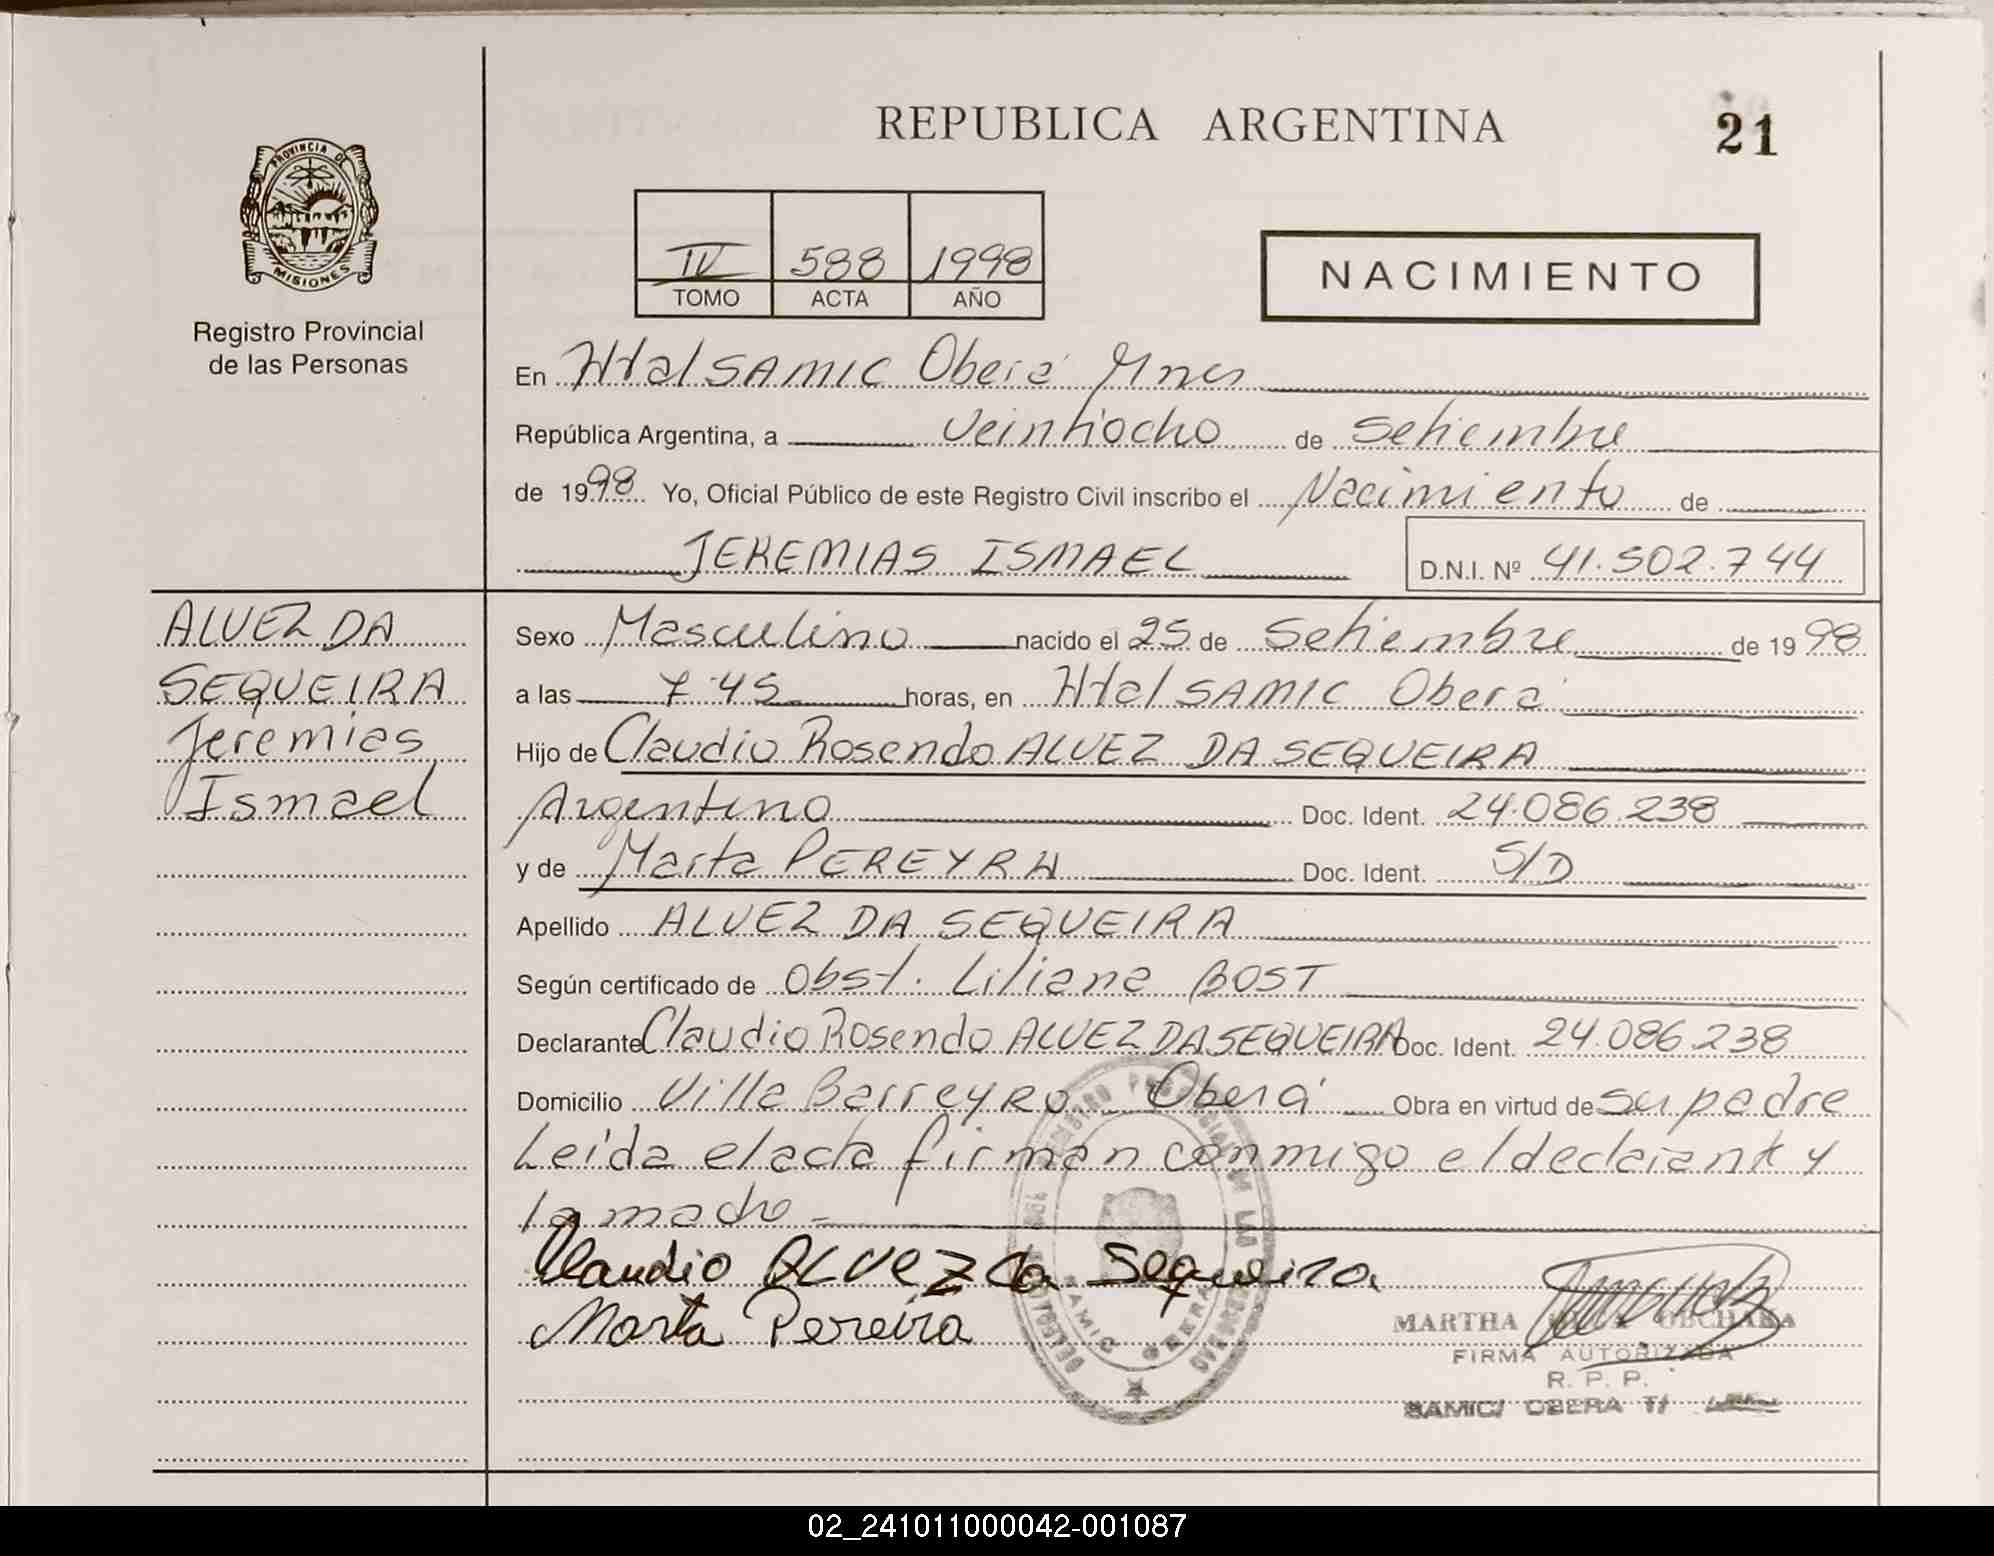 REPUBLICA ARGENTINA
21
PROVINCIA DE
MISIONES
Registro Provincial
de las Personas
IV 588 1998
TOMO ACTA AÑO
NACIMIENTO
En Htal SAMIC Oberá Mnes
República Argentina, a veintiocho de Setiembre
de 1998 Yo, Oficial Público de este Registro Civil inscribo el Nacimiento de
JEREMIAS ISMAEL
D.N.I. Nº 41.502.744
ALVEZ DA
SEQUEIRA
Jeremias
Ismael
Sexo Masculino nacido el 25 de Setiembre de 1998
a las 7.45 horas, en Htal SAMIC Oberá
Hijo de Claudio Rosendo ALVEZ DA SEQUEIRA
Argentino Doc. Ident. 24.086.238
y de Marta PEREYRA Doc. Ident. S/D
Apellido ALVEZ DA SEQUEIRA
Según certificado de Obst. Liliana BOST
Declarante Claudio Rosendo ALVEZ DA SEQUEIRA Doc. Ident. 24.086.238
Domicilio Villa Barreyro Oberá Obra en virtud de su padre
Leída el acta firman conmigo el declarante y
la madre -
Claudio ALVEZ da Sequeira.
Marta Pereira
SAMIC OBERA
MARTHA OBCHAKA
FIRMA AUTORIZADA
R. P. P.
SAMIC/ OBERA T/
02_241011000042-001087